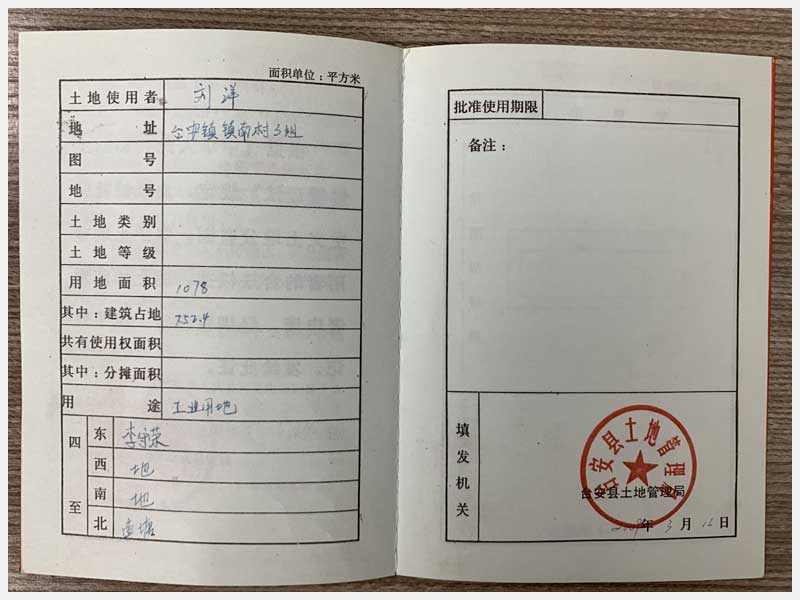 面积单位：平方米
土地使用者 刘洋
地址 台安镇镇南村3组
图号
地号
土地类别
土地等级
用地面积 1078
其中：建筑占地 752.4
共有使用权面积
其中：分摊面积
用途 工业用地
四至
东 李守荣
西 地
南 地
北 鱼塘
批准使用期限
备注：
填发机关
台安县土地管理局
台安县土地管理局
年 3月16日